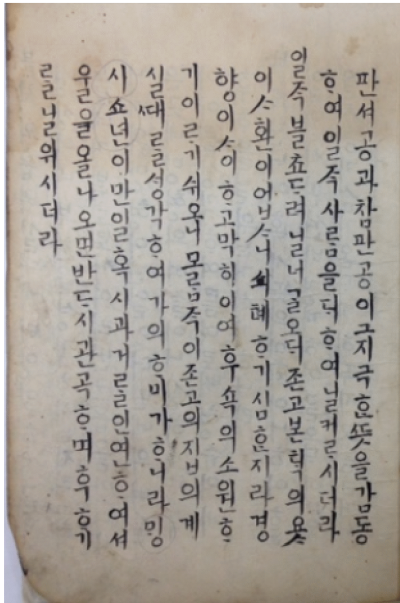 판셔공과참판공이그지극ᄒᆞᆫᄯᅳᆺ을감동
ᄒᆞ여일즉사ᄅᆞᆷ을ᄃᆡᄒᆞ여닐커ᄅᆞ시더라
일즉블쵸ᄃᆞ려닐너ᄀᆞᆯ오ᄃᆡ존고본ᄃᆡᆨ의
이ᄉᆞ환이어브ᄉᆞ니ᄒᆞ기심ᄒᆞᆫ지라경
향이ᄉᆞ이ᄒᆞ고막히이여후쇽의소원ᄒᆞ
기이르기쉬오니모ᄅᆞᆷ즉이존고의지브의계
실ᄯᅢᄅᆞᆯᄉᆡᆼ각ᄒᆞ여가의ᄒᆞ미가ᄒᆞ니라ᄆᆡᆼ
시쇼년이만일혹시과거ᄅᆞᆯ인연ᄒᆞ여셔
우ᄅᆞᆯ올나오면반ᄃᆞ시관곡ᄒᆞ며후ᄒᆞ기
ᄅᆞᆯ닐위시더라